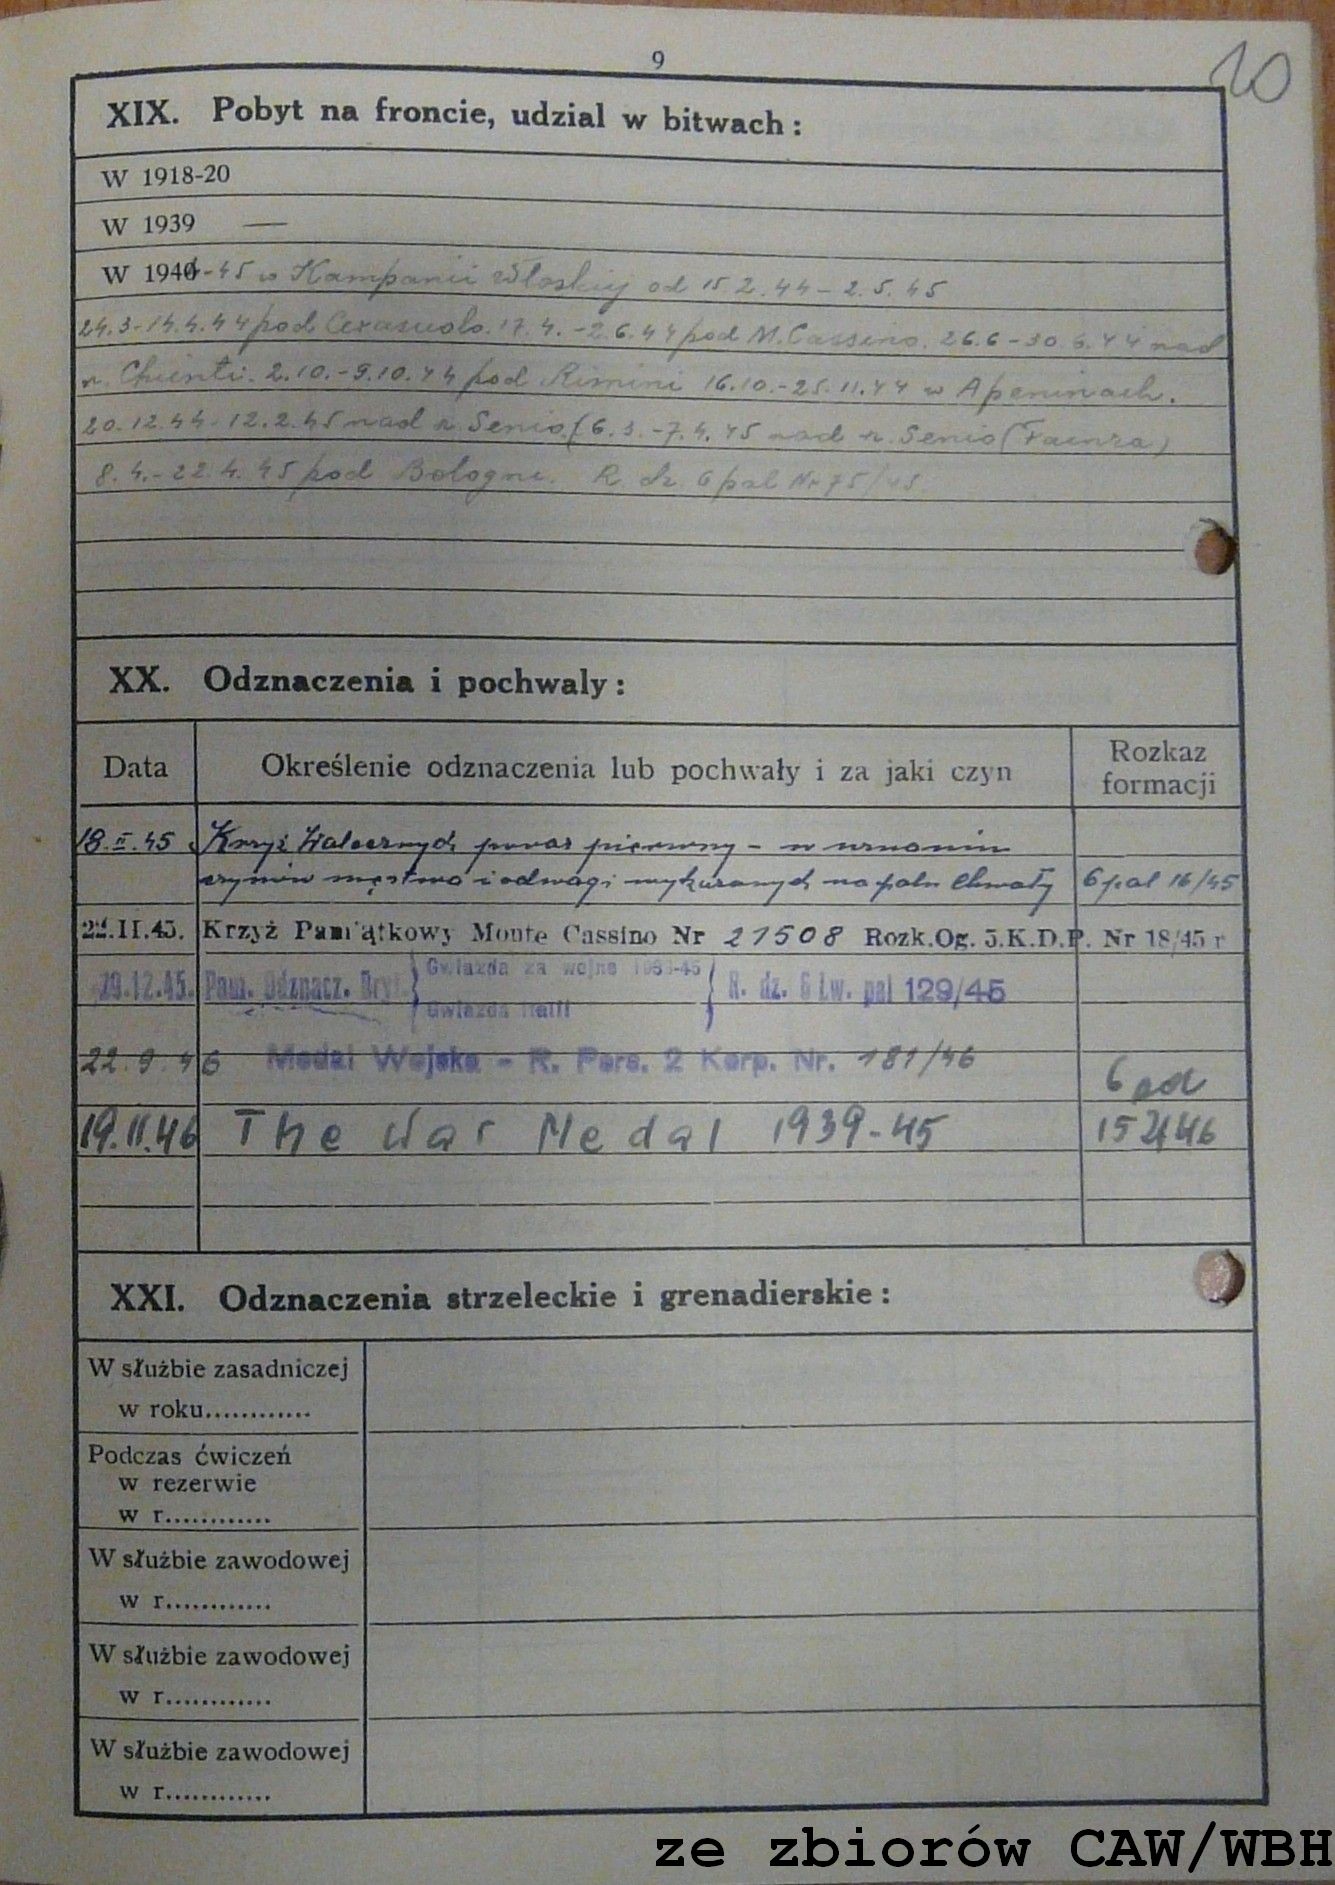 9
20
XIX. Pobyt na froncie, udzial w bitwach:
W 1918-20
W 1939 —
W 1944-45 w Kampanii Włoskiej od 15.2.44 - 2.5.45
24.3-14.4.44 pod Cerasuolo. 17.4.-2.6.44 pod M. Cassino. 26.6-30.6.44 nad
r. Chienti. 2.10.-9.10.44 pod Rimini 16.10.-25.11.44 w Apeninach.
20.12.44-12.2.45 nad r. Senio. (6.3.-7.4.45 nad r. Senio (Faenza)
8.4.-22.4.45 pod Bologne. R. dz. 6 pal Nr 75/45.
XX. Odznaczenia i pochwaly:
Data
Określenie odznaczenia lub pochwały i za jaki czyn
Rozkaz
formacji
18.II.45 Krzyż Walecznych poraz pierwszy - w uznaniu
czynów męstwa i odwagi wykazanych na polu Chwały 6 pal 16/45
22.II.45. Krzyż Pamiątkowy Monte Cassino Nr 21508 Rozk.Og. 5.K.D.P. Nr 18/45 r
29.12.45. Pam. Odznacz. Bryt. { Gwiazda za wojnę 1939-45 } R. dz. 6 Lw. pal 129/45
Gwiazda Italii
22.9.46 Medal Wojska - R. Pers. 2 Korp. Nr. 181/46
6 pal
19.11.46 The War Medal 1939-45 152/46
XXI. Odznaczenia strzeleckie i grenadierskie:
W służbie zasadniczej
w roku............
Podczas ćwiczeń
w rezerwie
w r............
W służbie zawodowej
w r............
W służbie zawodowej
w r............
W służbie zawodowej
w r............
ze zbiorów CAW/WBH